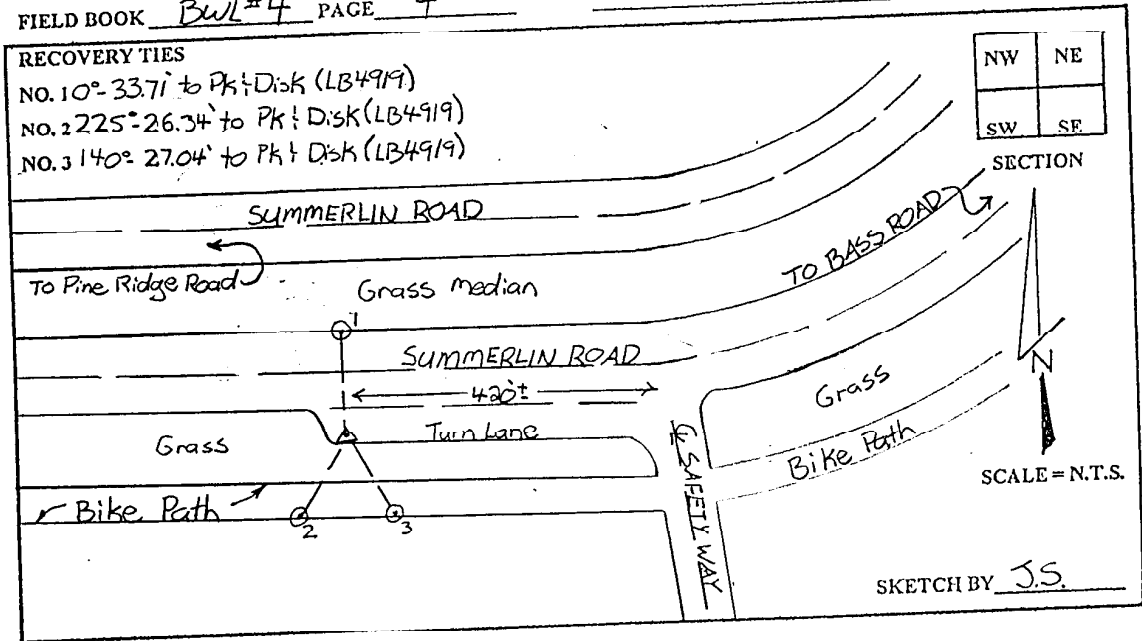 FIELD BOOK BWL#4 PAGE
RECOVERY TIES
NO. 1 0°-33.71' to Pk & Disk (LB4919)
NO. 2 225°-26.34' to Pk & Disk (LB4919)
NO. 3 140°-27.04' to Pk & Disk (LB4919)
NW NE
SW SE
SECTION
SUMMERLIN ROAD
To Pine Ridge Road
Grass Median
TO BASS ROAD
1
SUMMERLIN ROAD
420'±
N
Grass
Turn Lane
Grass
Bike Path
SCALE = N.T.S.
Bike Path
2
3
℄ SAFETY WAY
SKETCH BY J.S.